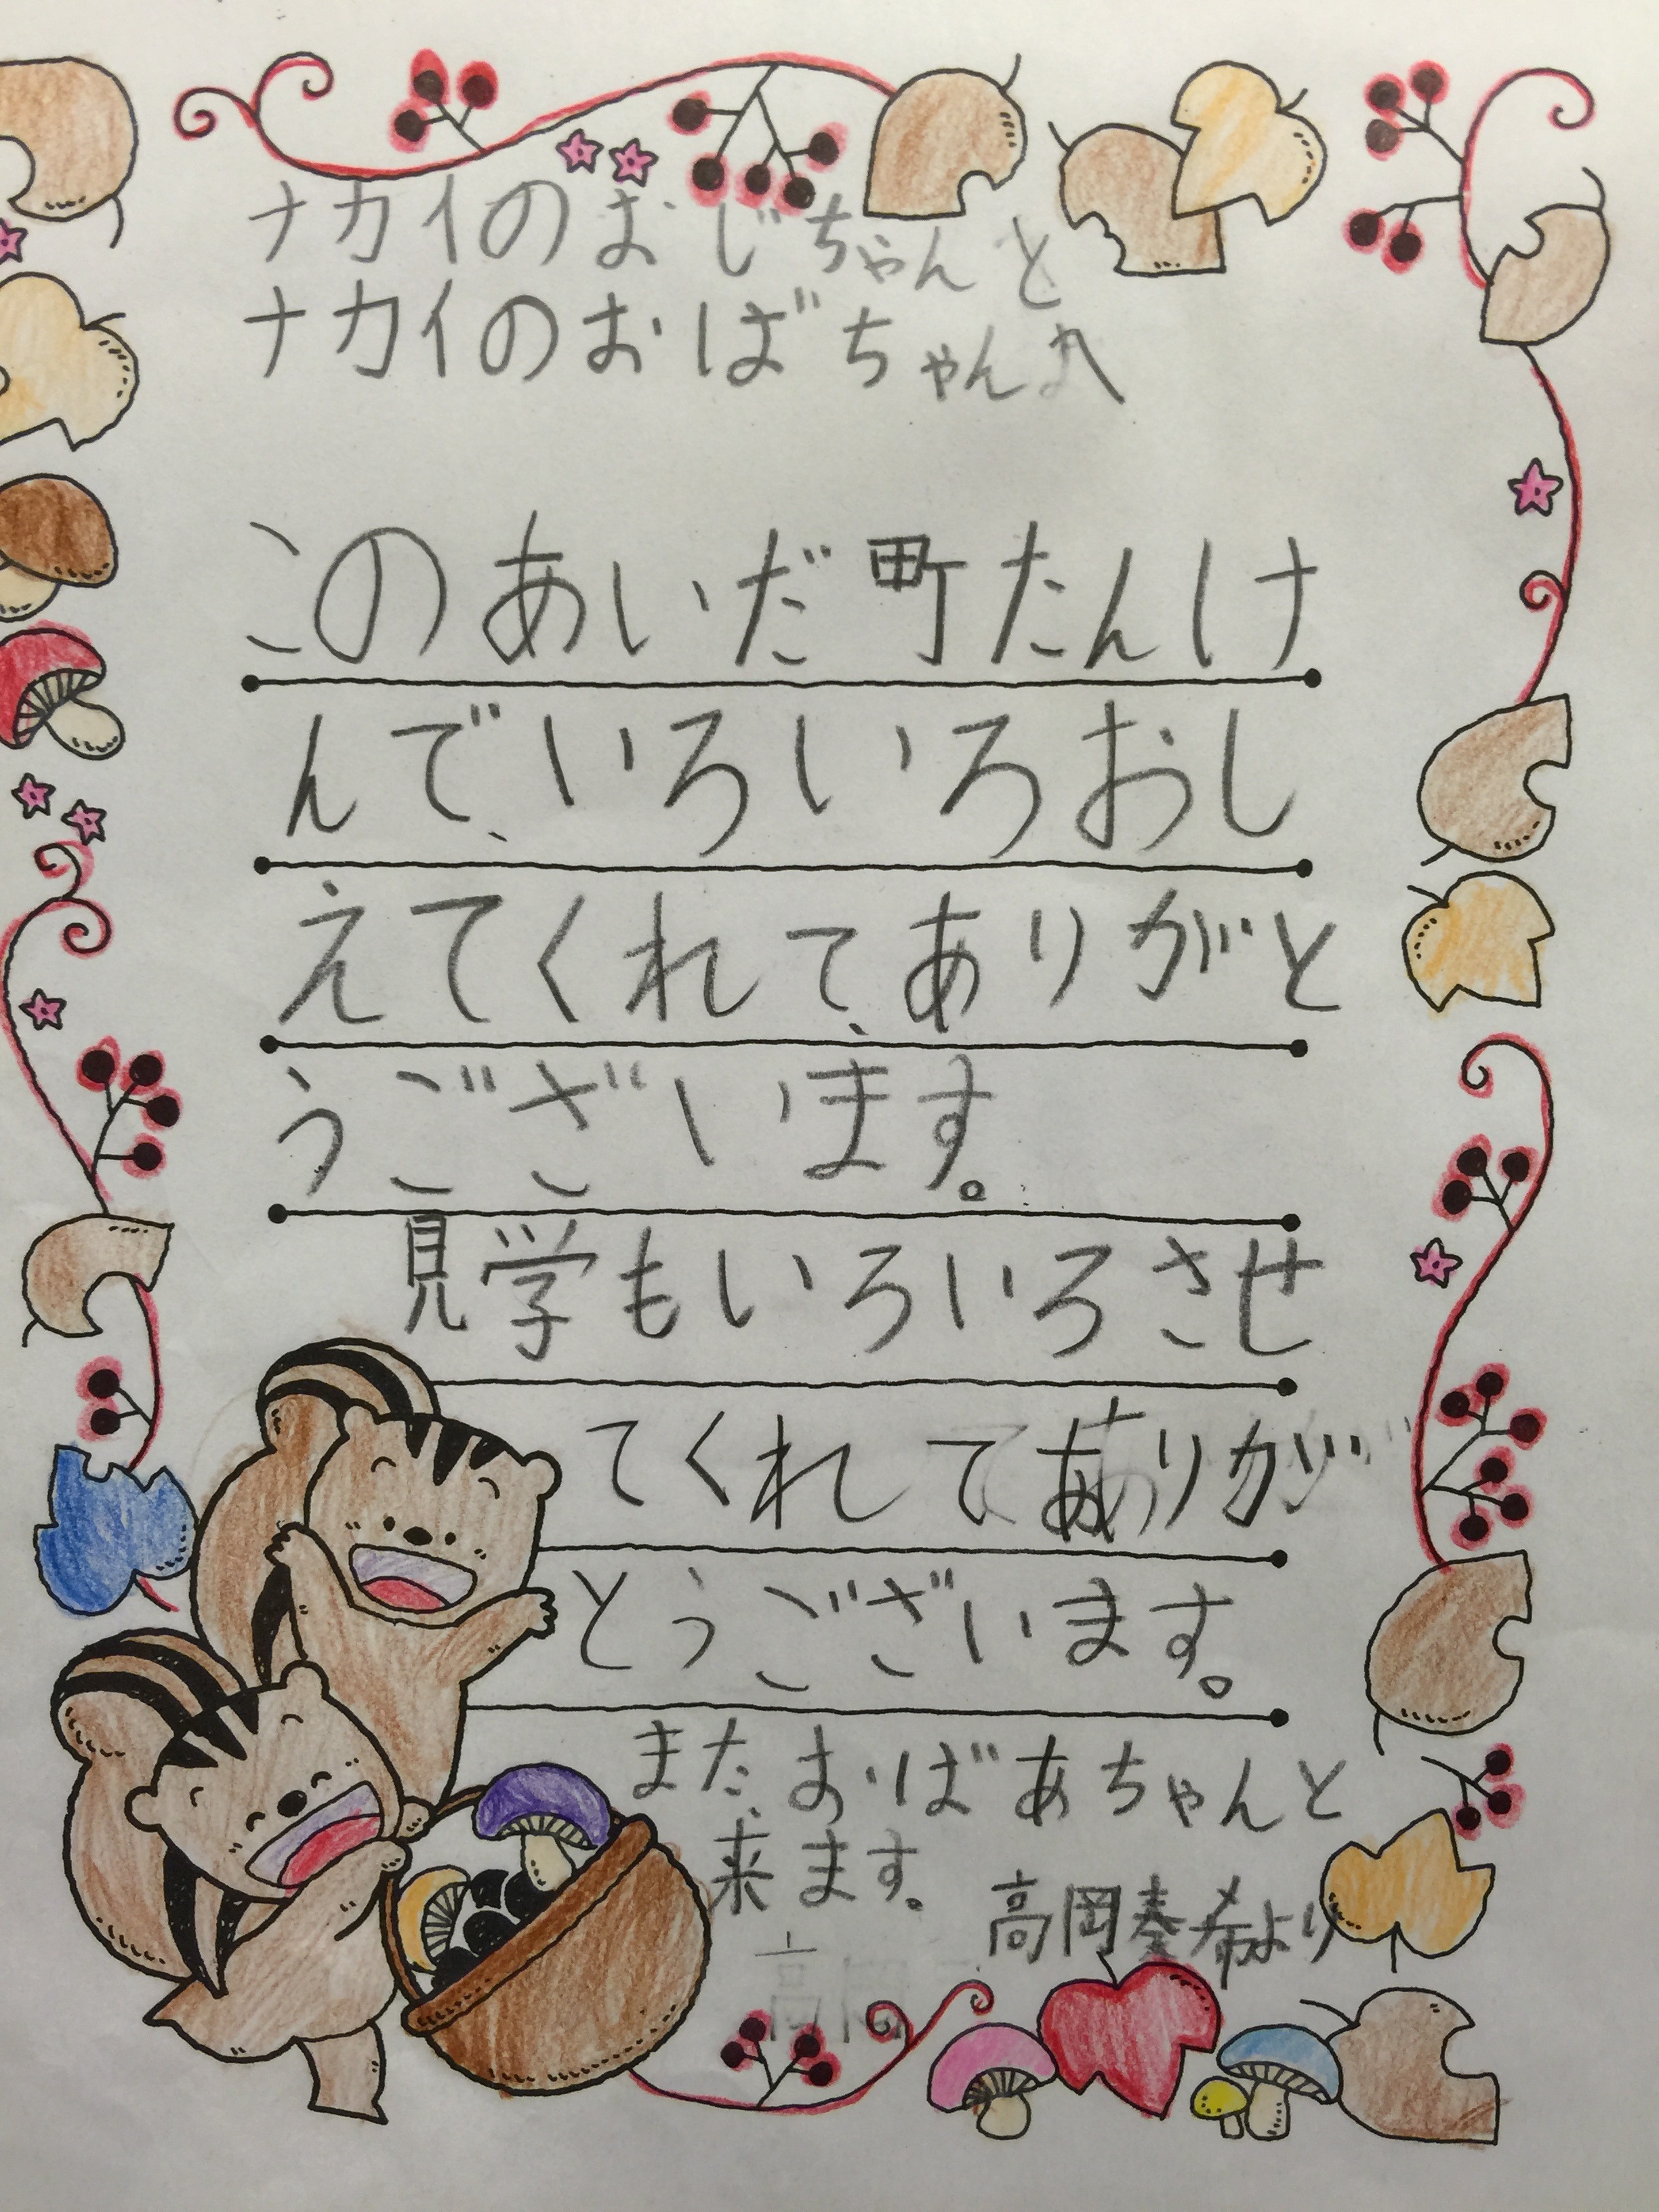 ナカイのおじちゃんと
ナカイのおばちゃんへ
このあいだ町たんけ
んで、いろいろおし
えてくれて、ありがと
うございます。
見学もいろいろさせ
てくれてありが
とうございます。
また、おばあちゃんと
来ます。
高岡奏希より
高岡